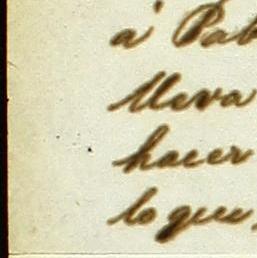 á Pab
lleva
hacer
lo que,